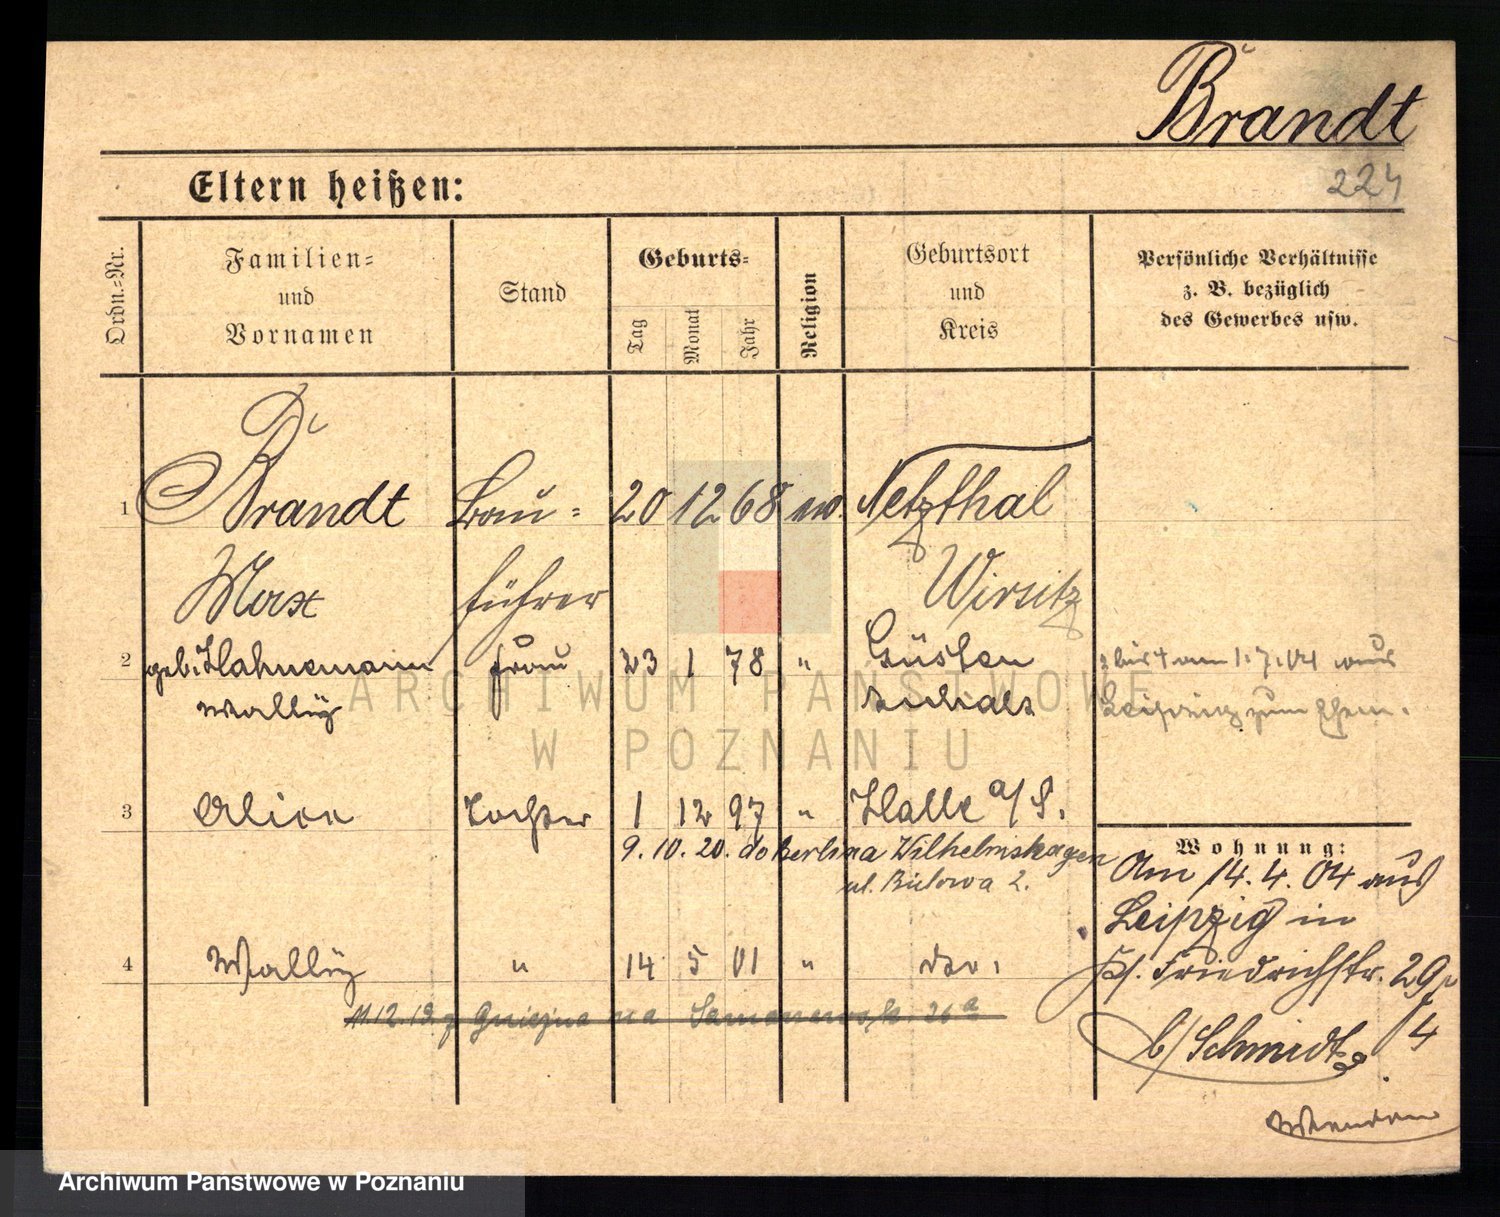 Brandt
224
Eltern heißen:
Ordn.-Nr.
Familien- und Vornamen
Stand
Geburts-
Tag
Monat
Jahr
Religion
Geburtsort und Kreis
Persönliche Verhältnisse z. B. bezüglich des Gewerbes usw.
1 Brandt Bau- 20 12 68 ev. Netzthal
Max führer Wirsitz
2 geb. Hahnemann Frau 23 1 78 " Güsten
Wally
am 1.7.04 aus
Leipzig zum
3 Alice Tochter 1 12 97 " Halle a/S.
9. 10. 20. do Berlina Wilhelmshagen
ul. Bülowa 2.
Wohnung:
Am 14.4.04 aus
Leipzig in
Friedrichstr. 29
4 Wally " 14 5 01 " do.
11.12.19. z Gniezna na 26a
b/Schmidt 4
ARCHIWUM PAŃSTWOWE
W POZNANIU
Archiwum Państwowe w Poznaniu